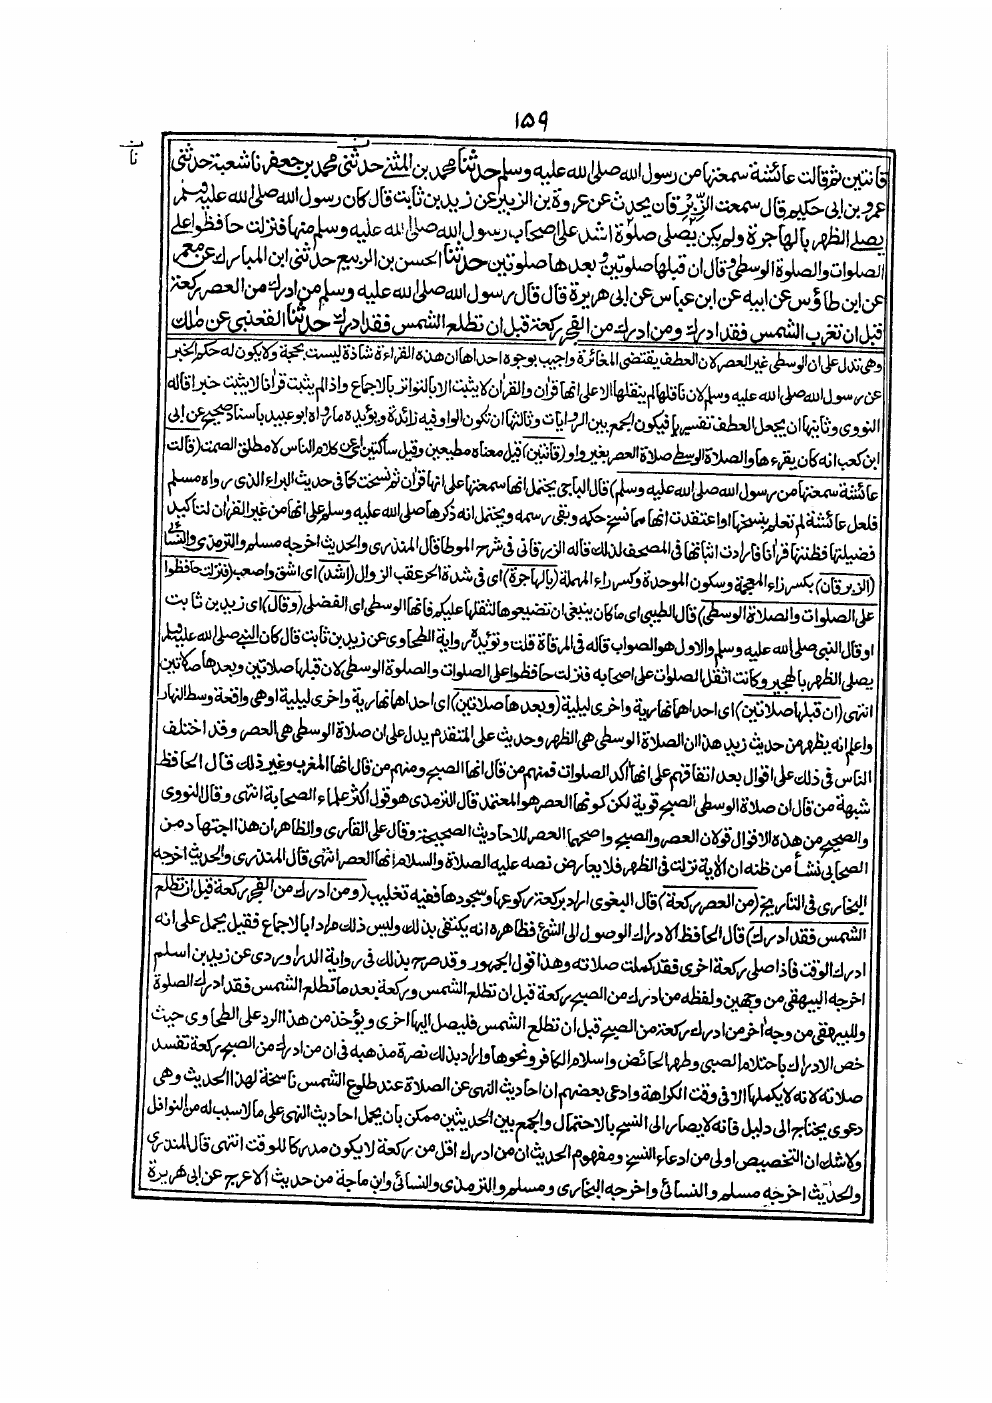 ۱۵۹
نا
قانتين ثم قالت عائشة سمعتها من رسول الله صلى الله عليه وسلم حدثنا محمد بن المثنى حدثني محمد بن جعفر نا شعبة حدثني
عمرو بن ابى حكيم قال سمعت الزبرقان يحدث عن عروة بن الزبير عن زيد بن ثابت قال كان رسول الله صلى الله عليه وسلم
يصلى الظهر بالهاجرة ولم يكن يصلى صلوة اشد على اصحاب رسول الله صلى الله عليه وسلم منها فنزلت حافظوا على
الصلوات والصلوة الوسطى وقال ان قبلها صلوتين وبعدها صلوتين حدثنا الحسن بن الربيع حدثنى ابن المبارك عن معمر
عن ابن طاؤس عن ابيه عن ابن عباس عن ابى هريرة قال قال رسول الله صلى الله عليه وسلم من ادرك من العصر ركعة
قبل ان تغرب الشمس فقد ادرك ومن ادرك من الفجر ركعة قبل ان تطلع الشمس فقد ادرك حدثنا القعنبى عن مالك
وهى تدل على ان الوسطى غير العصر لان العطف يقتضى المغائرة واجيب بوجوه احداها ان هذه القراءة شاذة ليست بحجة ولا يكون له حكم الخبر
عن رسول الله صلى الله عليه وسلم لان ناقلها لم ينقلها الا على انها قرأن والقرأن لا يثبت الا بالتواتر بالاجماع واذا لم يثبت قرأنا لا يثبت خبرا قاله
النووى وثانيها ان يجعل العطف تفسيريا فيكون الجمع بين الروايات وثالثها ان تكون الواو فيه زائدة ويؤيده ما رواه ابو عبيد باسناد صحيح عن ابى
ابن كعب انه كان يقرءها والصلاة الوسطى صلاة العصر بغير واو (قانتين) قيل معناه مطيعين وقيل ساكتين اى عن كلام الناس لا مطلق الصمت (قالت
عائشة سمعتها من رسول الله صلى الله عليه وسلم) قال الباجى يحتمل انها سمعتها على انها قرأن ثم نسخت كما فى حديث البراء الذى رواه مسلم
فلعل عائشة لم تعلم بنسخها او اعتقدت انها مما نسخ حكمه وبقى رسمه ويحتمل انه ذكرها صلى الله عليه وسلم على انها من غير القرأن لتاكيد
فضيلتها فظنتها قرأنا فارادت اثباتها فى المصحف لذلك قاله الزرقانى فى شرح الموطا قال المنذرى والحديث اخرجه مسلم والترمذى والنسائى
(الزبرقان) بكسر زاء المعجمة وسكون الموحدة وكسر راء المهملة (بالهاجرة) اى فى شدة الحر عقب الزوال (اشد) اى اشق واصعب (فنزلت حافظوا
على الصلوات والصلاة الوسطى) قال الطيبى اى ما كان ينبغى ان تضيعوها لثقلها عليكم فانها الوسطى اى الفضلى (وقال) اى زيد بن ثابت
او قال النبى صلى الله عليه وسلم والاول هو الصواب قاله فى المرقاة قلت وتؤيده رواية الطحاوى عن زيد بن ثابت قال كان النبى صلى الله عليه وسلم
يصلى الظهر بالهجير وكانت اثقل الصلوات على اصحابه فنزلت حافظوا على الصلوات والصلوة الوسطى لان قبلها صلاتين وبعدها صلاتين
انتهى (ان قبلها صلاتين) اى احداهما نهارية واخرى ليلية (وبعدها صلاتين) اى احداهما نهارية واخرى ليلية او هى واقعة وسط النهار
واعلم انه يظهر من حديث زيد هذا ان الصلاة الوسطى هى الظهر وحديث على المتقدم يدل على ان صلاة الوسطى هى العصر وقد اختلف
الناس فى ذلك على اقوال بعد اتفاقهم على انها أكد الصلوات فمنهم من قال انها الصبح ومنهم من قال انها المغرب وغير ذلك قال الحافظ
شبهة من قال ان صلاة الوسطى الصبح قوية لكن كونها العصر هو المعتمد قال الترمذى هو قول اكثر علماء الصحابة انتهى وقال النووى
والصحيح من هذه الاقوال قولان العصر والصبح واصحهما العصر للاحاديث الصحيحة وقال على القارى والظاهر ان هذا اجتهاد من
الصحابى نشأ من ظنه ان الأية نزلت فى الظهر فلا يعارض نصه عليه الصلاة والسلام انها العصر انتهى قال المنذرى والحديث اخرجه
البخارى فى التاريخ (من العصر ركعة) قال البغوى اراد بركعة ركوعها وسجودها ففيه تغليب (ومن ادرك من الفجر ركعة قبل ان تطلع
الشمس فقد ادرك) قال الحافظ الادراك الوصول الى الشئ فظاهره انه يكتفى بذلك وليس ذلك مرادا بالاجماع فقيل يحمل على انه
ادرك الوقت فاذا صلى ركعة اخرى فقد كملت صلاته وهذا قول الجمهور وقد صرح بذلك فى رواية الدراوردى عن زيد بن اسلم
اخرجه البيهقى من وجهين ولفظه من ادرك من الصبح ركعة قبل ان تطلع الشمس وركعة بعد ما تطلع الشمس فقد ادرك الصلوة
وللبيهقى من وجه أخر من ادرك ركعة من الصبح قبل ان تطلع الشمس فليصل اليها اخرى ويؤخذ من هذا الرد على الطحاوى حيث
خص الادراك باحتلام الصبى وطهر الحائض واسلام الكافر ونحوها واراد بذلك نصرة مذهبه فى ان من ادرك من الصبح ركعة تفسد
صلاته لانه لا يكملها الا فى وقت الكراهة وادعى بعضهم ان احاديث النهى عن الصلاة عند طلوع الشمس ناسخة لهذا الحديث وهى
دعوى يحتاج الى دليل فانه لا يصار الى النسخ بالاحتمال والجمع بين الحديثين ممكن بان يحمل احاديث النهى على ما لا سبب له من النوافل
ولا شك ان التخصيص اولى من ادعاء النسخ ومفهوم الحديث ان من ادرك اقل من ركعة لا يكون مدركا للوقت انتهى قال المنذرى
والحديث اخرجه مسلم والنسائى واخرجه البخارى ومسلم والترمذى والنسائى وابن ماجة من حديث الاعرج عن ابى هريرة